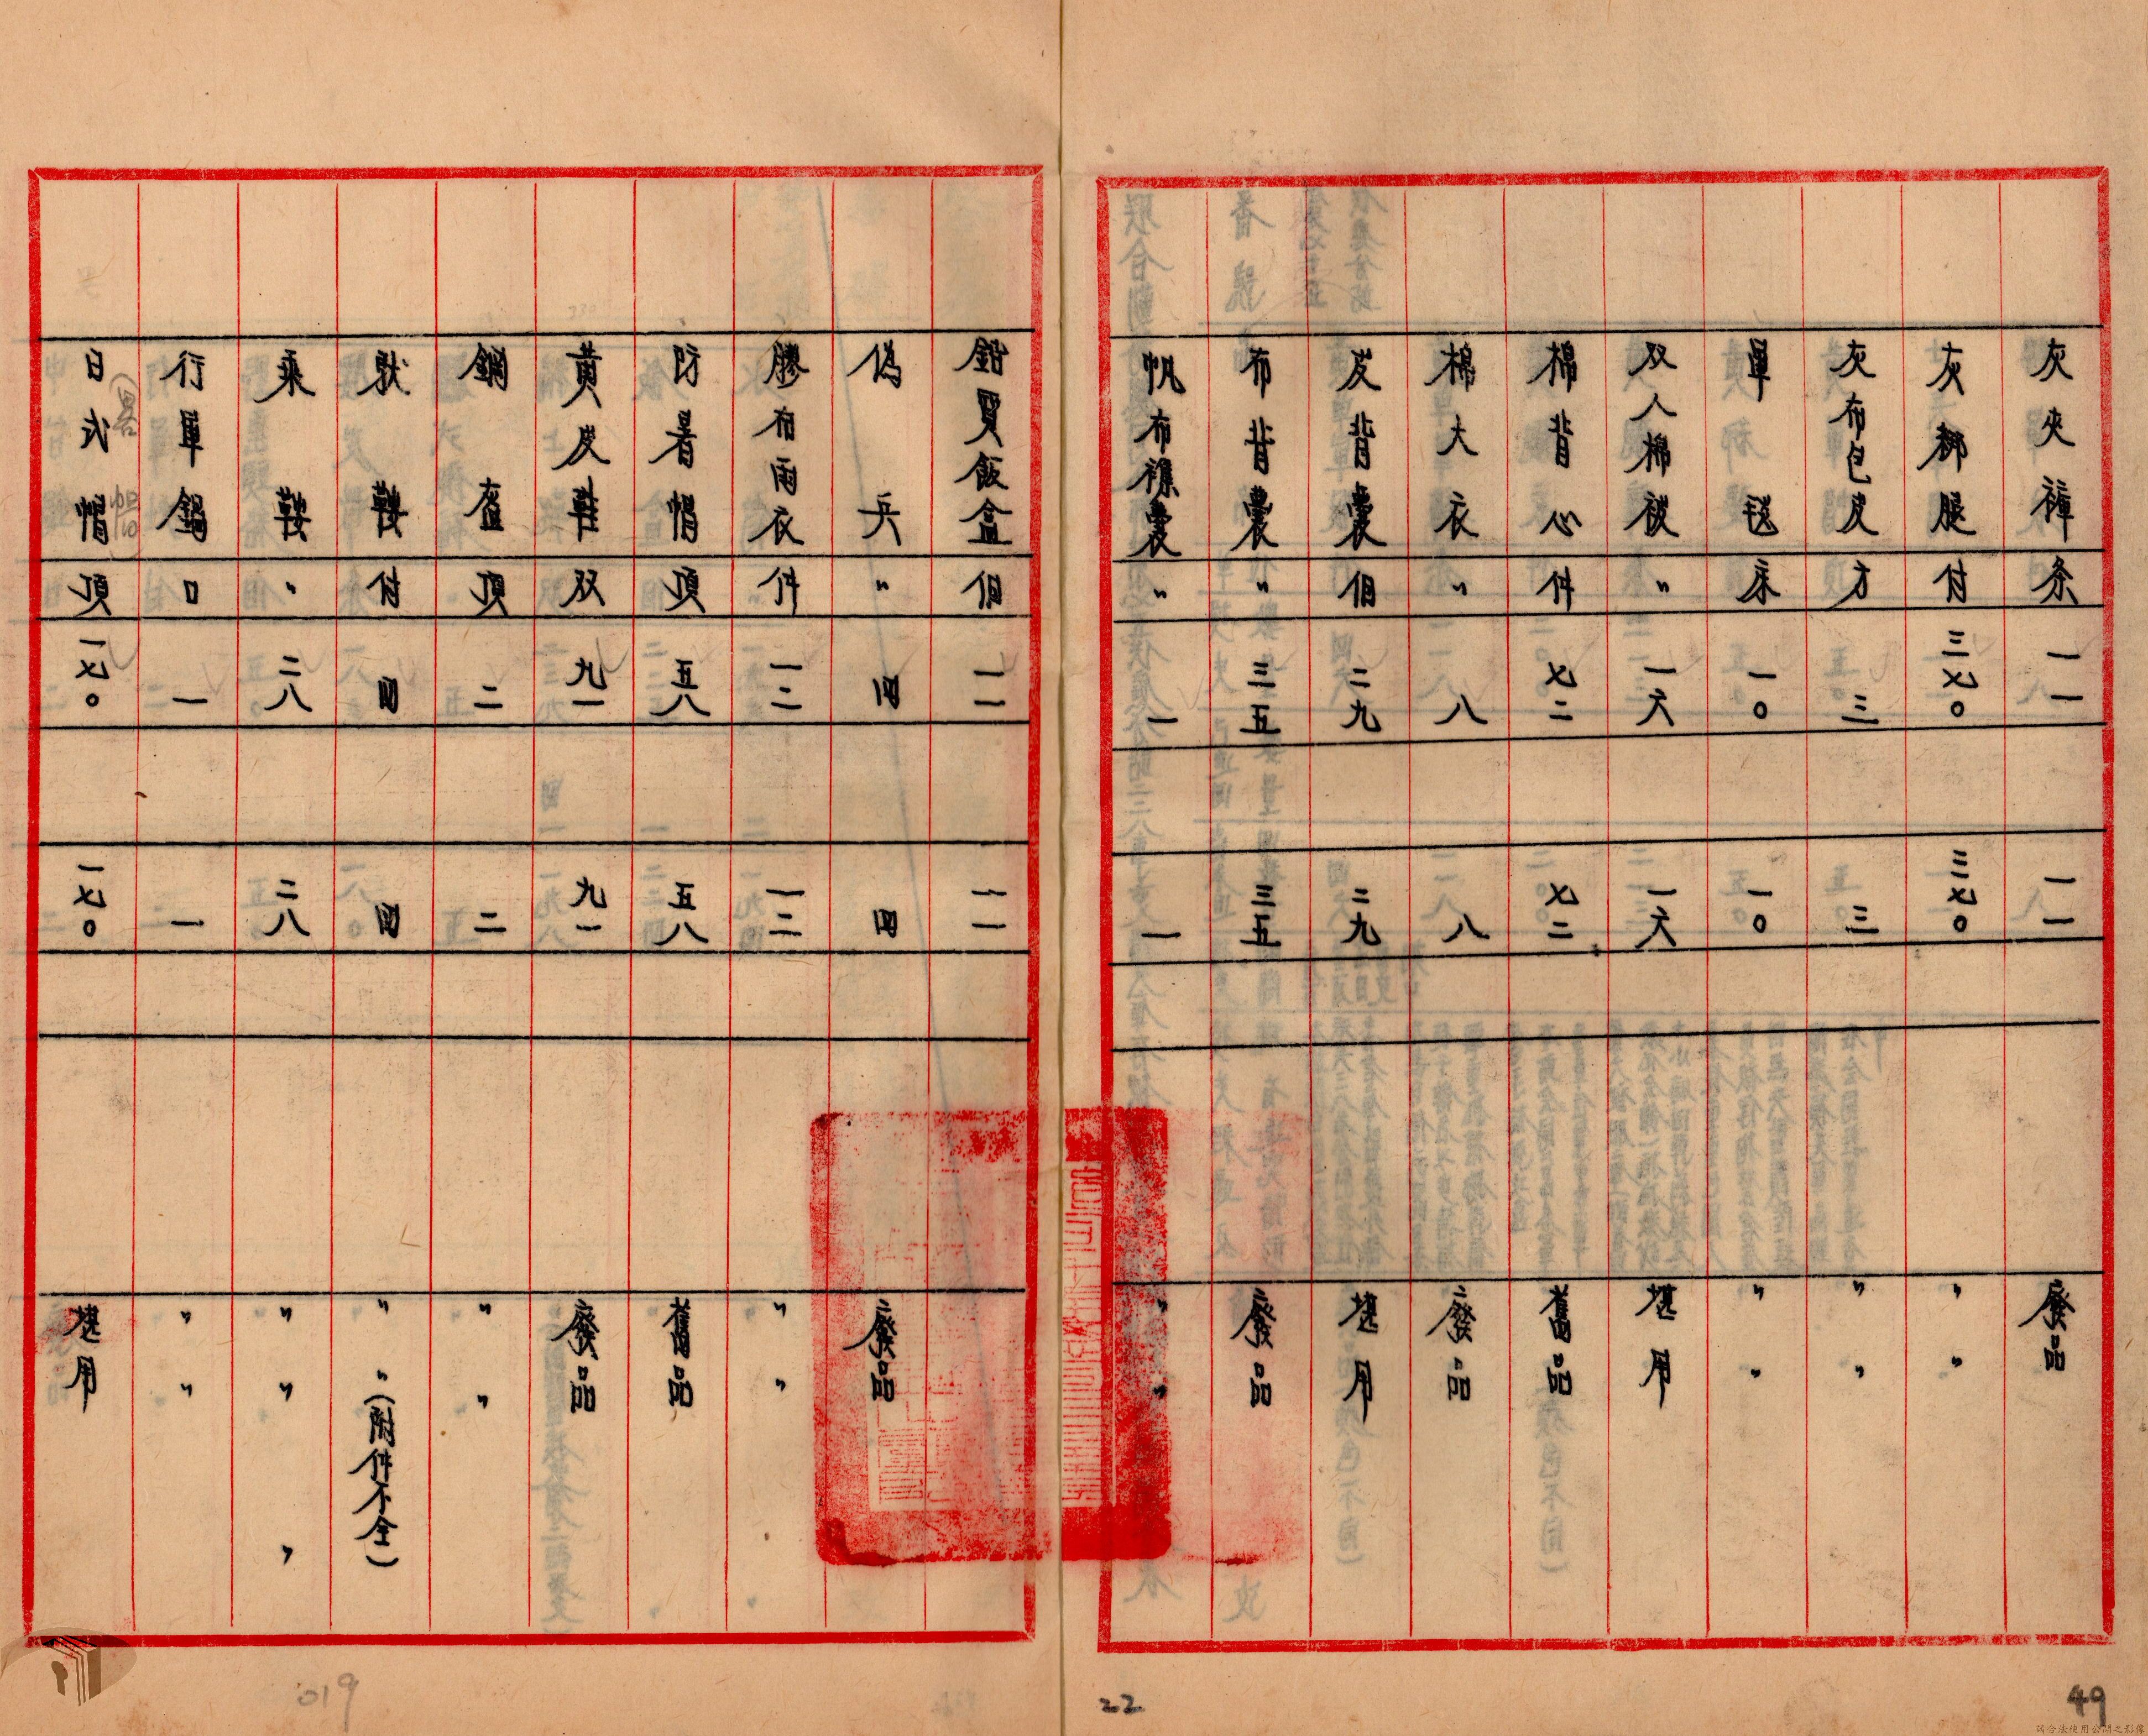 灰夾褲 条 一一 一一 廢品
灰綁腿 付 三七〇 三七〇 〃 〃
灰布包皮 方 三 三 〃 〃
軍毯 床 一〇 一〇 〃 〃
双人棉被 〃 一六 一六 堪用
棉背心 件 七二 七二 舊品
棉大衣 〃 八 八 廢品
皮背囊 個 二九 二九 堪用
布背囊 〃 三五 三五 廢品
帆布襍囊 〃 一 一 〃 〃
鉛質飯盒 個 一一 一一
偽兵 〃 四 四 廢品
膠布雨衣 件 一二 一二 〃 〃
防暑帽 頂 五八 五八 舊品
黃皮鞋 双 九一 九一 廢品
鋼盔 頂 二 二 〃 〃
馱鞍 付 四 四 〃 〃（附件不全）
乘鞍 〃 二八 二八 〃 〃 〃
行軍鍋 口 一 一 〃 〃
日式帽 頂 一七〇 一七〇 堪用
019
22
49
請合法使用公開之影像